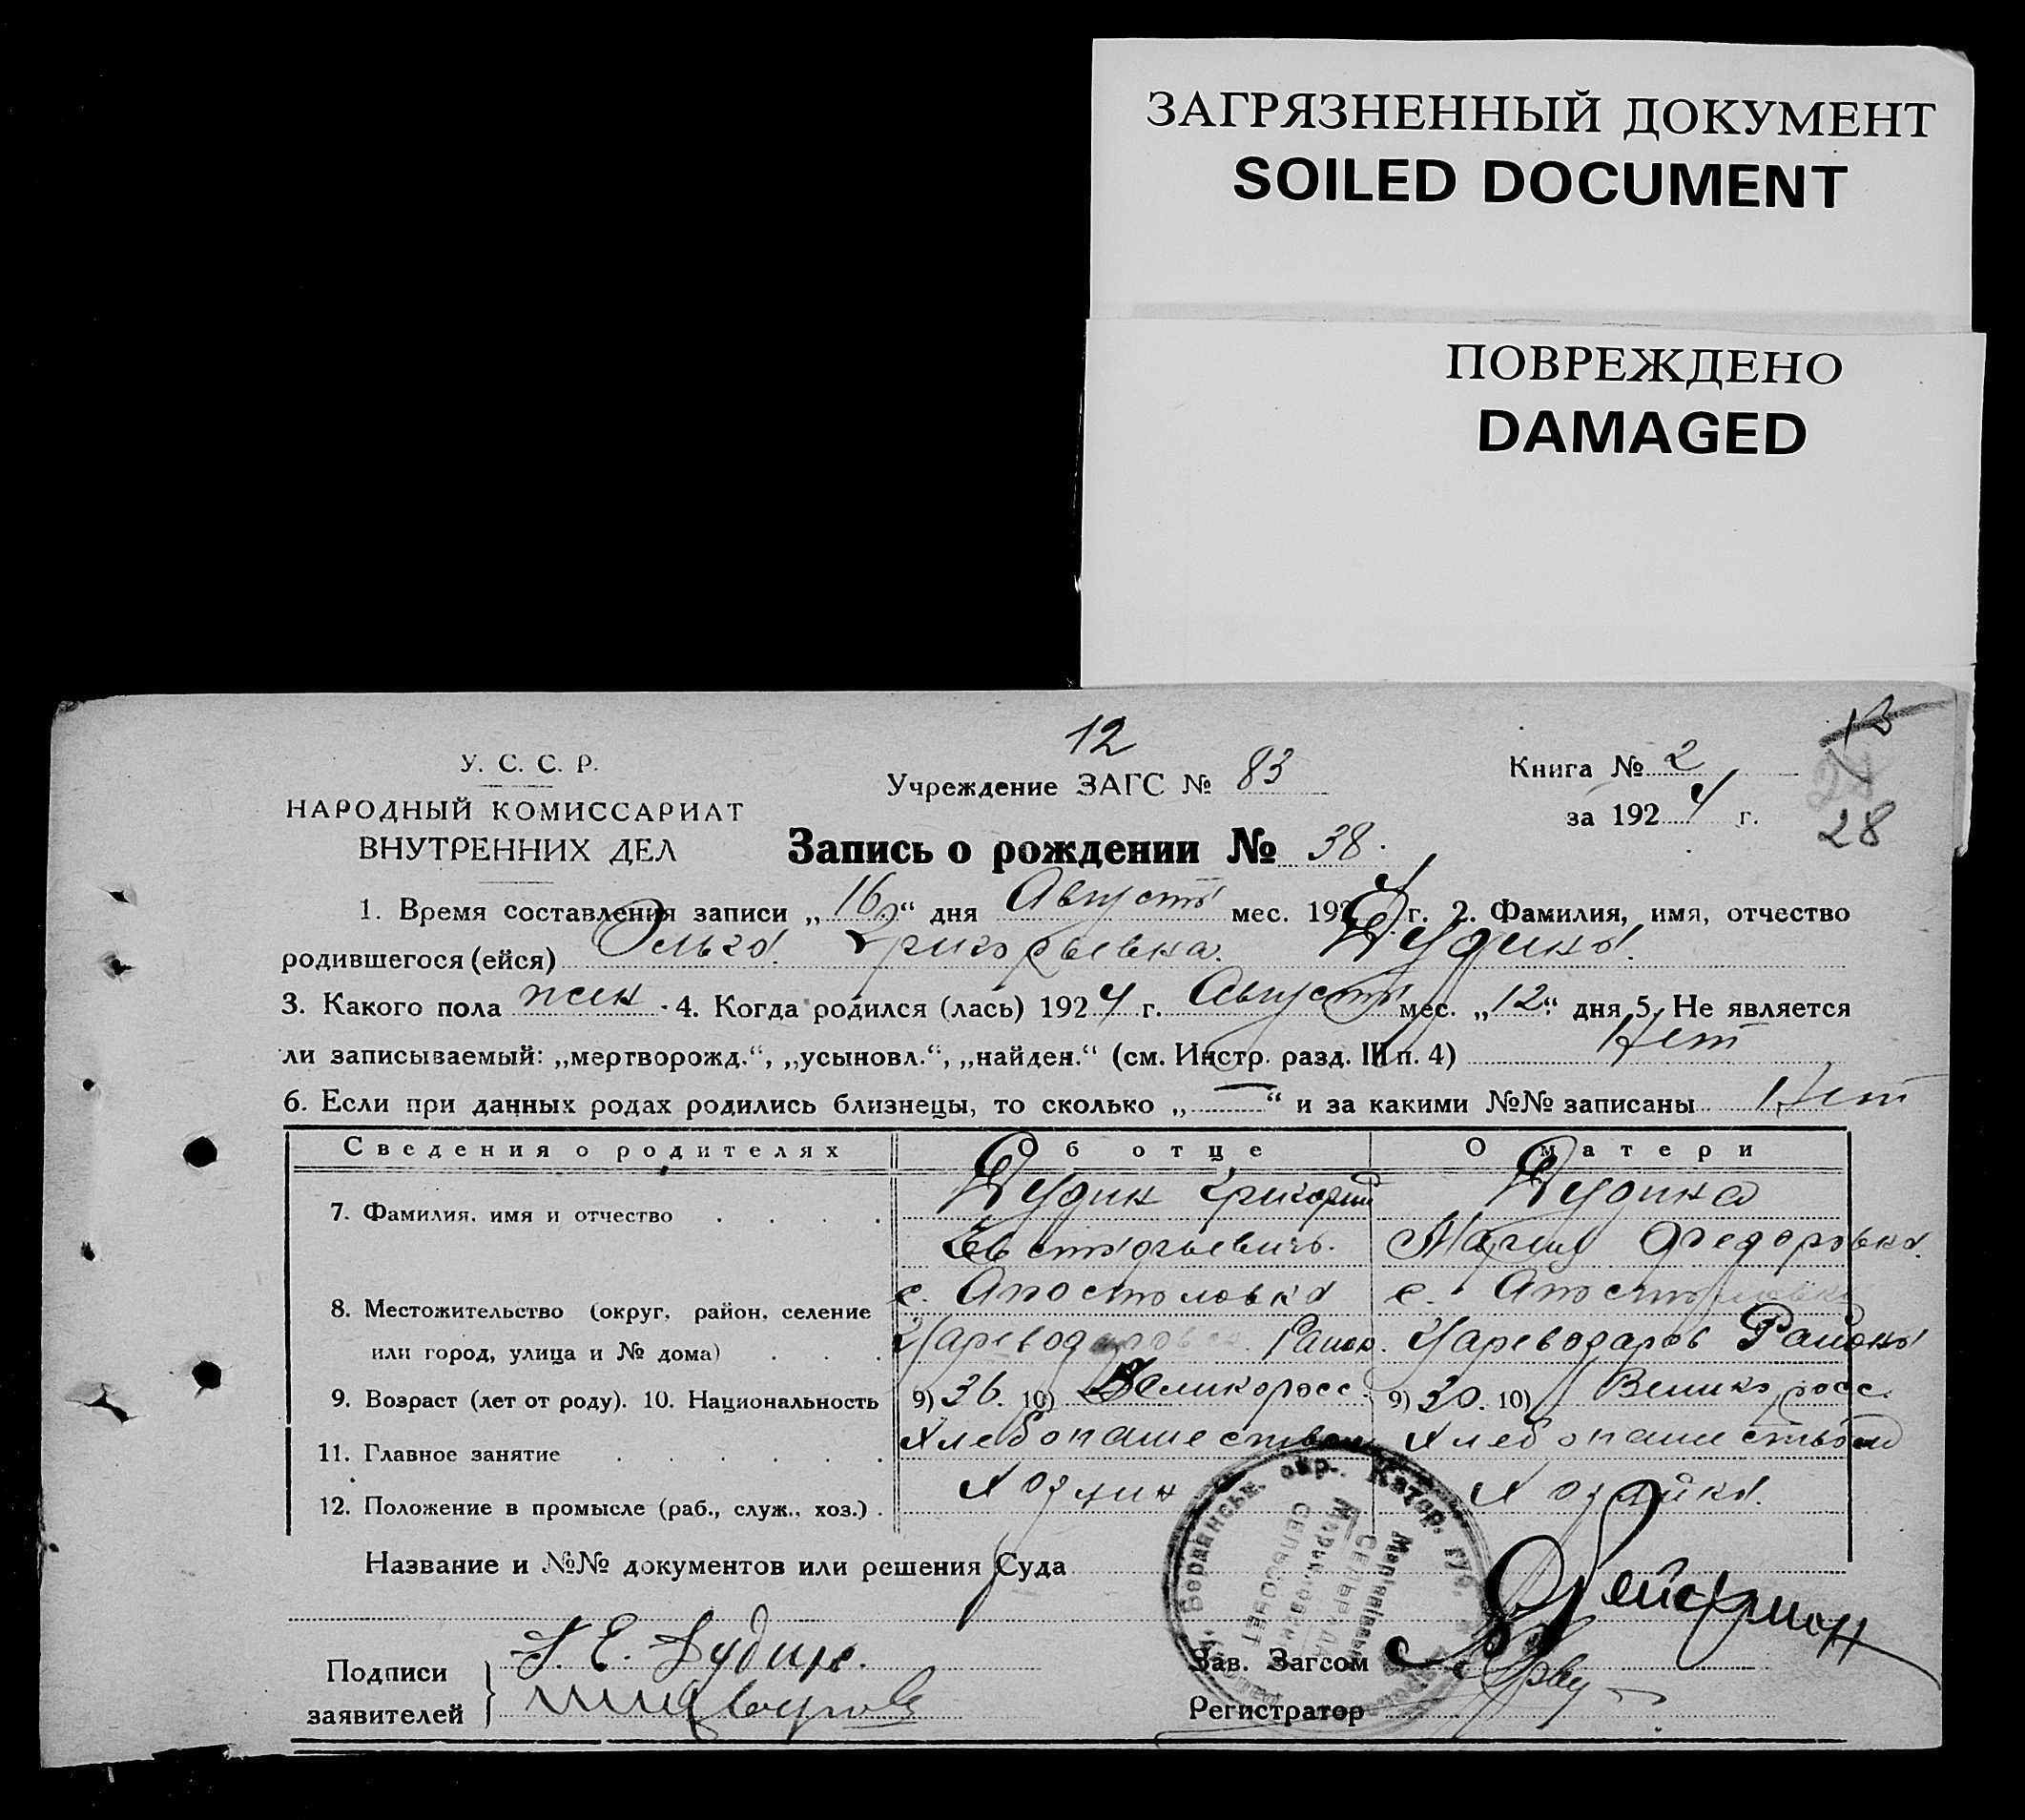 ЗАГРЯЗНЕННЫЙ ДОКУМЕНТ
SOILED DOCUMENT
ПОВРЕЖДЕНО
DAMAGED
12
У. С. С. Р.
НАРОДНЫЙ КОМИССАРИАТ
ВНУТРЕННИХ ДЕЛ
Учреждение ЗАГС № 83
Книга № 2
за 1924 г.
28
Запись о рождении № 38.
1. Время составления записи „16“ дня Августа мес. 1924 г. 2. Фамилия, имя, отчество
родившегося (ейся) Ольга Григорьевна Дудина.
3. Какого пола жен 4. Когда родился (лась) 1924 г. Августа мес. „12“ дня 5. Не является
ли записываемый: „мертворожд.“, „усыновл.“, „найден.“ (см. Инстр. разд. III п. 4) Нет
6. Если при данных родах родились близнецы, то сколько „—“ и за какими №№ записаны Нет
Сведения о родителях Об отце О матери
7. Фамилия, имя и отчество Дудин Григорий Дудина
Евстафьевичъ. Мария Федоровна.
8. Местожительство (округ, район, селение с. Апостоловка с. Апостоловка
или город, улица и № дома) Цареводаров Района
9. Возраст (лет от роду). 10. Национальность 9) 36. 10) Великоросс. 9) 30. 10) Великоросс.
11. Главное занятие Хлебопашеством Хлебопашеством
12. Положение в промысле (раб., служ., хоз.) Хозяин Хозяйка.
Название и №№ документов или решения Суда
Бердянськ. окр. Катер. губ.
СЕЛЬРАДА
СЕЛЬСОВЕТ
Подписи заявителей
Г. Е. Дудин.
Зав. Загсом
Регистратор